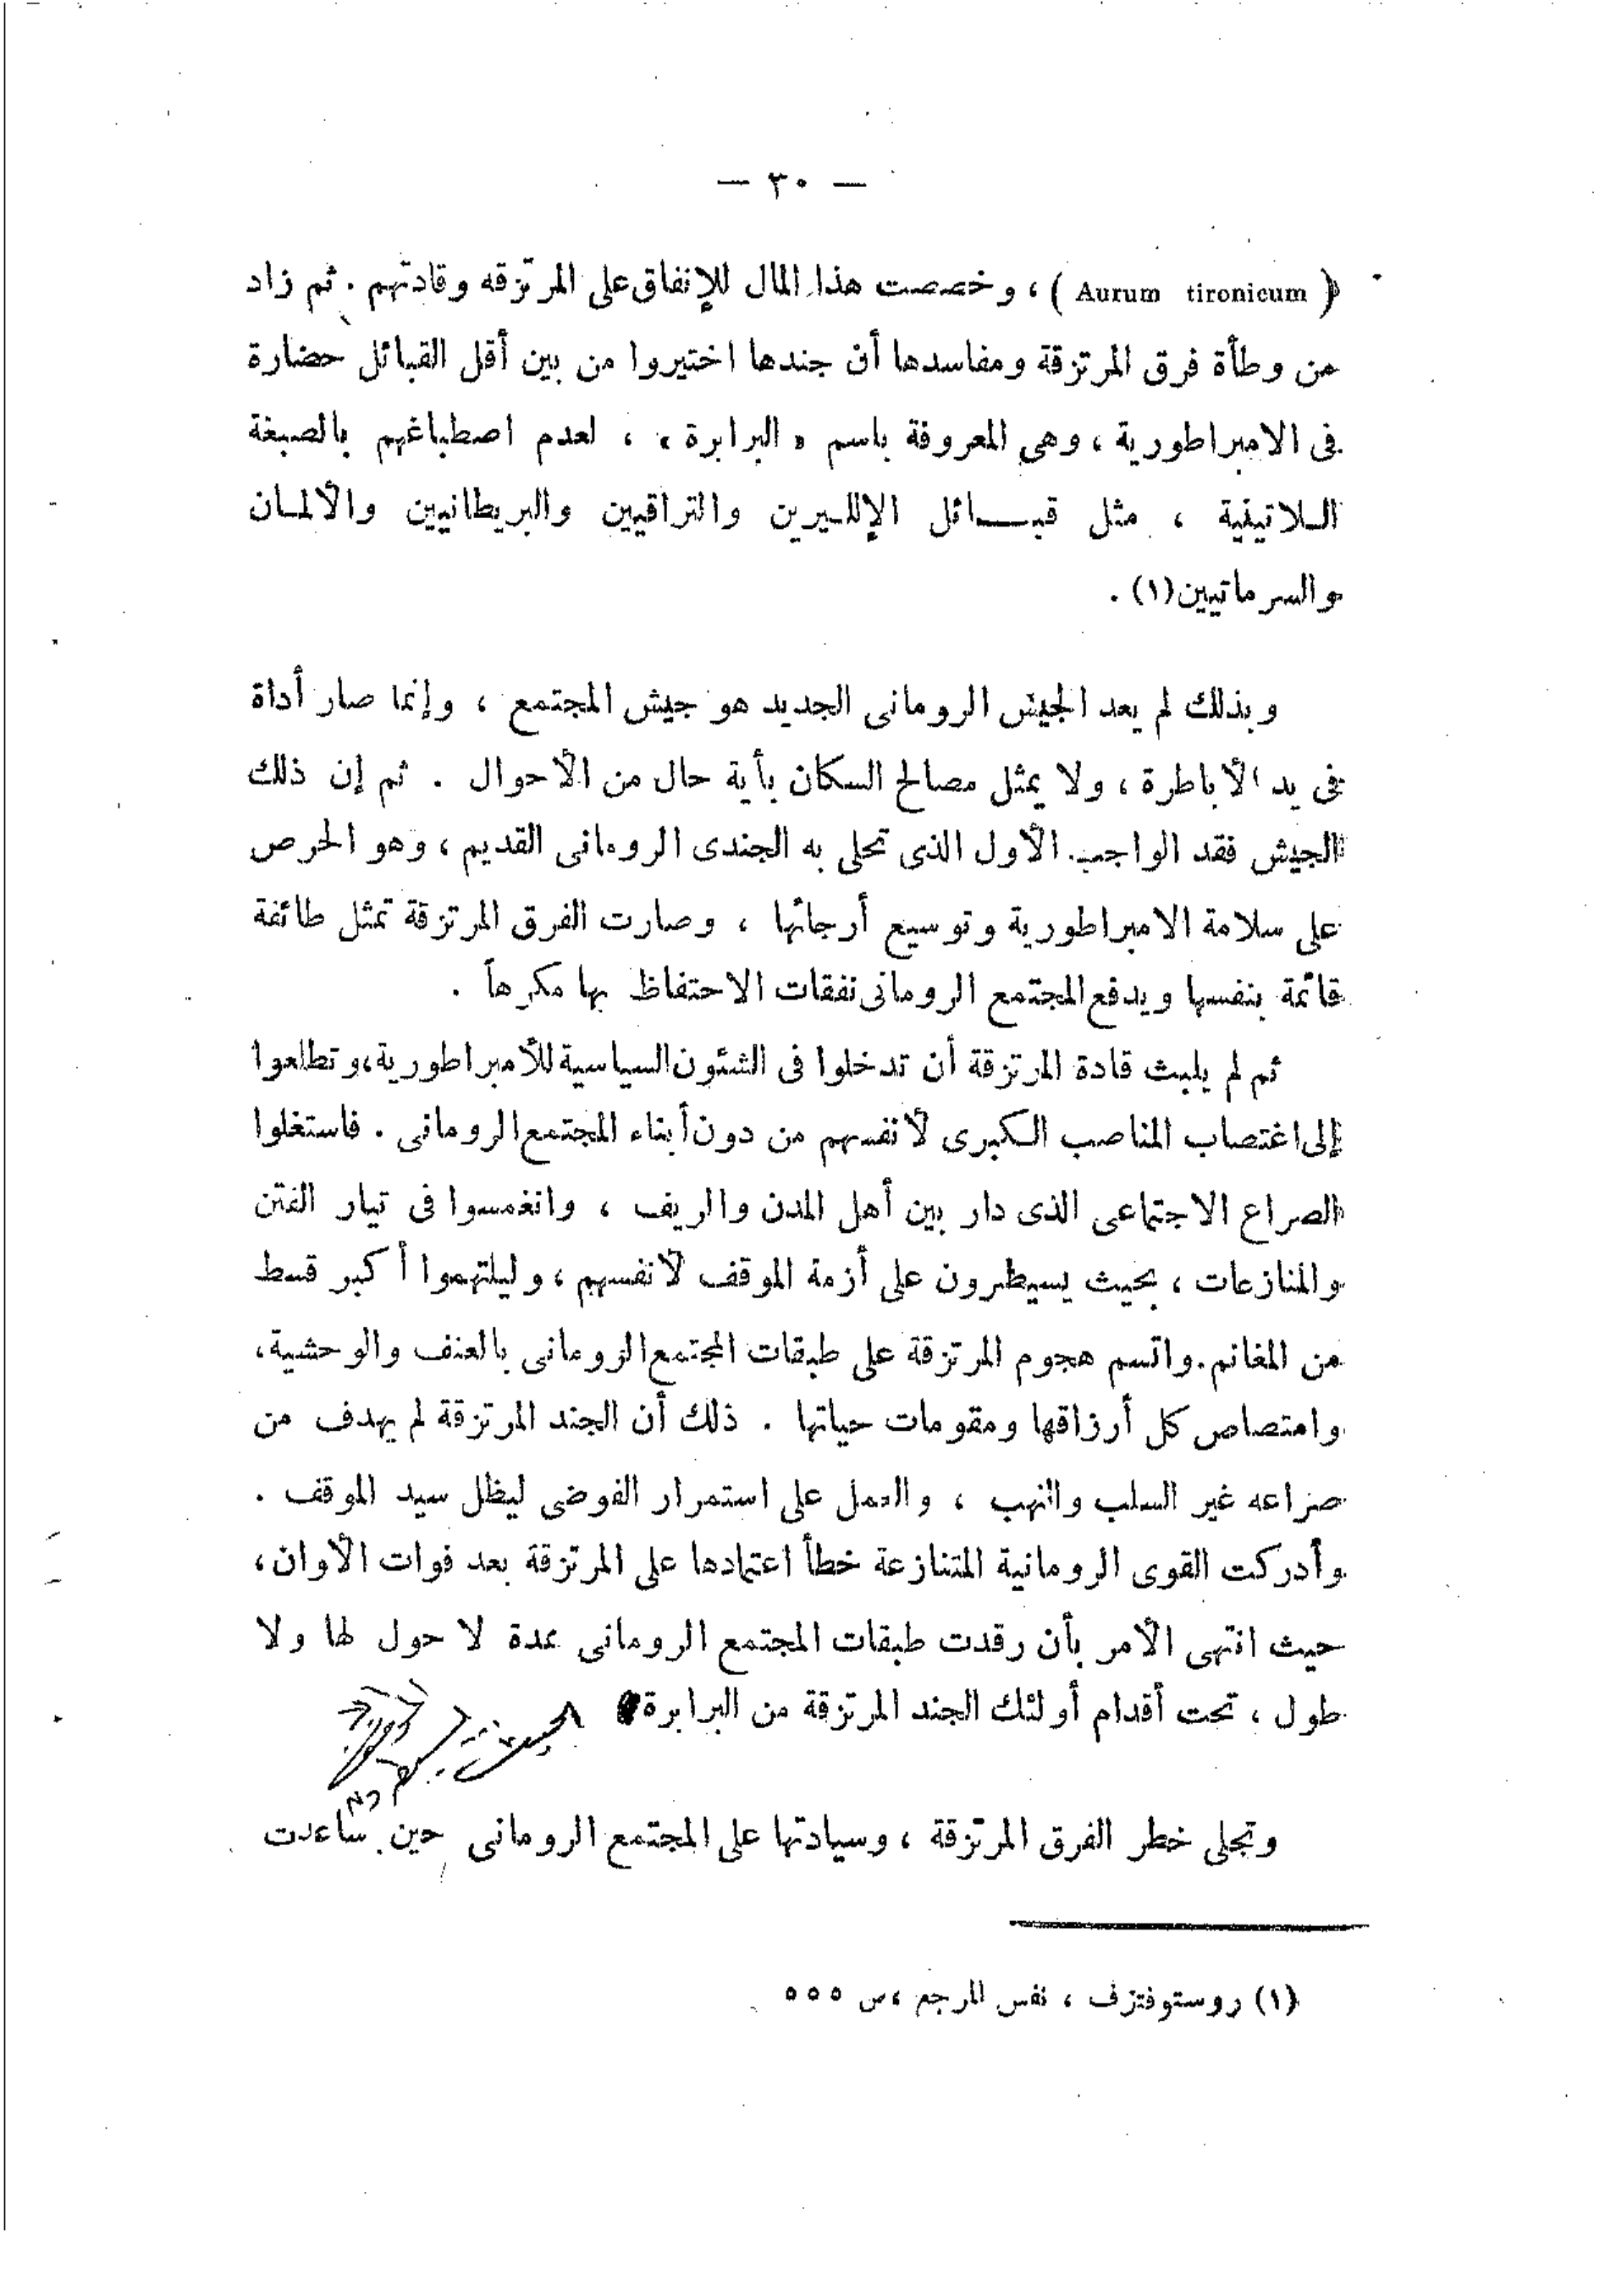 — ٣٠ —
( Aurum tironicum ) ، وخصصت هذا المال للإنفاق على المرتزقه وقادتهم . ثم زاد
من وطأة فرق المرتزقة ومفاسدها أن جندها اختيروا من بين أقل القبائل حضارة
فى الامبراطورية ، وهى المعروفة باسم « البرابرة » ، لعدم اصطباغهم بالصبغة
اللاتينية ، مثل قبائل الإلليرين والتراقيين والبريطانيين والألمان
والسرماتيين(١) .
وبذلك لم يعد الجيش الرومانى الجديد هو جيش المجتمع ، وإنما صار أداة
فى يد الأباطرة ، ولا يمثل مصالح السكان بأية حال من الأحوال . ثم إن ذلك
الجيش فقد الواجب الأول الذى تحلى به الجندى الرومانى القديم ، وهو الحرص
على سلامة الامبراطورية وتوسيع أرجائها ، وصارت الفرق المرتزقة تمثل طائفة
قائمة بنفسها ويدفع المجتمع الرومانى نفقات الاحتفاظ بها مكرهاً .
ثم لم يلبث قادة المرتزقة أن تدخلوا فى الشئون السياسية للأمبراطورية، وتطلعوا
إلى اغتصاب المناصب الكبرى لأنفسهم من دون أبناء المجتمع الرومانى . فاستغلوا
الصراع الاجتماعى الذى دار بين أهل المدن والريف ، وانغمسوا فى تيار الفتن
والمنازعات ، بحيث يسيطرون على أزمة الموقف لأنفسهم ، وليلتهموا أكبر قسط
من المغانم . واتسم هجوم المرتزقة على طبقات المجتمع الرومانى بالعنف والوحشية،
وامتصاص كل أرزاقها ومقومات حياتها . ذلك أن الجند المرتزقة لم يهدف من
صراعه غير السلب والنهب ، والعمل على استمرار الفوضى ليظل سيد الموقف .
وأدركت القوى الرومانية المتنازعة خطأ اعتمادها على المرتزقة بعد فوات الأوان،
حيث انتهى الأمر بأن رقدت طبقات المجتمع الرومانى عدة لا حول لها ولا
طول ، تحت أقدام أولئك الجند المرتزقة من البرابرة
وتجلى خطر الفرق المرتزقة ، وسيادتها على المجتمع الرومانى حين ساعدت
(١) روستوفتزف ، نفس المرجع ، س ٥٥٥